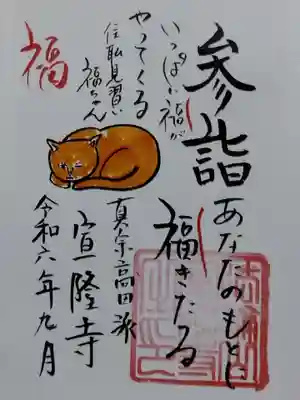 参詣
あなたのもとに
福きたる
いっぱい福が
やってくる
住職見習い
福ちゃん
福
真宗高田派
宣隆寺
令和六年九月